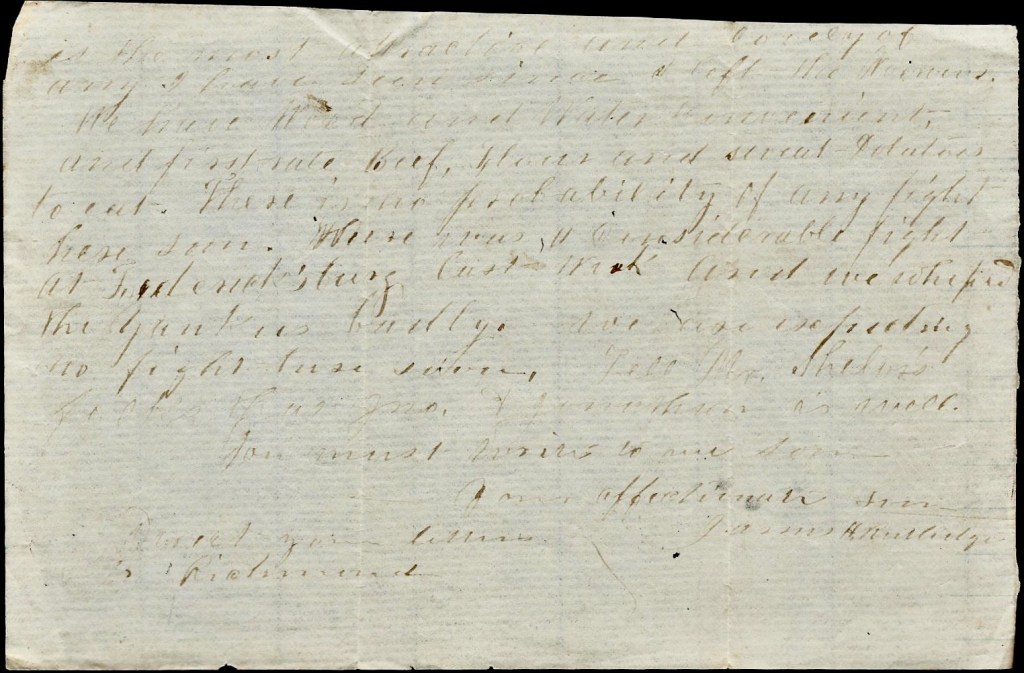 is the most attractive and lovely of
any I have seen since I left the
We have Wood and Water Convenient,
and first rate Beef, flour and sweat Potatoes
to eat. There is no probability of any fight
here soon. There was a Considerable fight
at Fredericksburg last week and we whiped
the Yankees badly. We are expecting
no fight here soon, Tell Mr. Shelor's
folks that Jno. & Jonathan is well.
You must write to me soon
Your affectionate son
James H Rutledge
Direct your letters
to Richmond